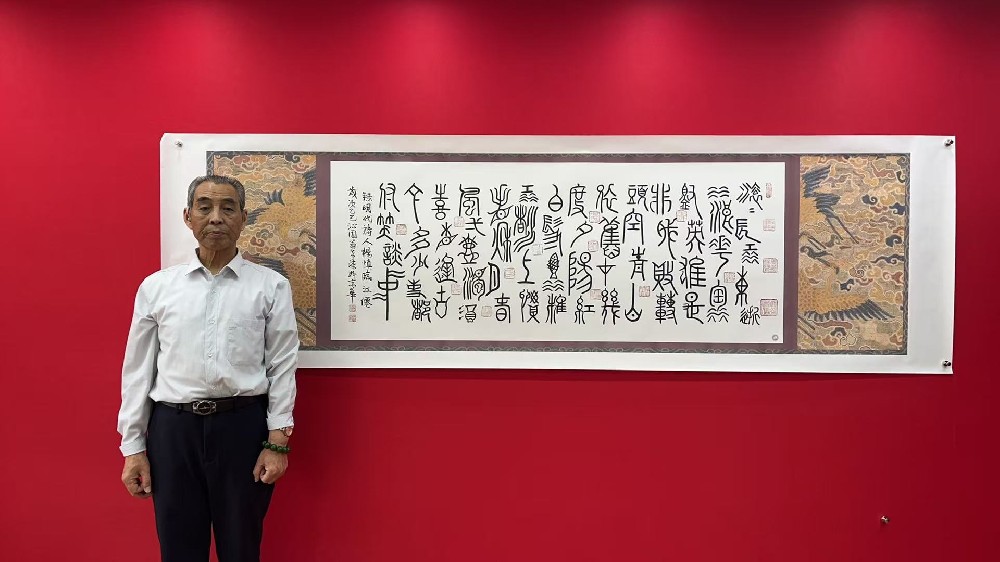 滾〻長江東逝
水浪花淘
盡英雄是
非成敗轉
頭空青山
依舊在幾
度夕陽紅
白髮漁樵
江渚上慣
看秋月春
風弌壺濁酒
喜相逢古
今多少事都
付笑談中
錄明代詩人楊慎臨江僊
歲次乙巳沁園於京華